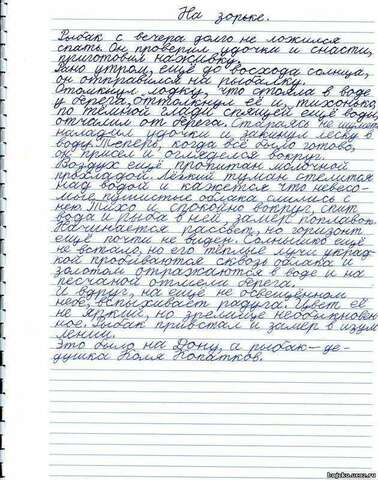 На зорьке.
Рыбак с вечера долго не ложился
спать. Он проверил удочки и снасти,
приготовил наживку.
Рано утром, ещё до восхода солнца,
он отправился на рыбалку.
Отомкнул лодку, что стояла в воде
у берега, оттолкнул её и, тихонько,
по тёмной глади спящей ещё воды,
отчалил от берега. Стараясь не шуметь
наладил удочки и закинул леску в
воду. Теперь, когда всё было готово,
он присел и огляделся вокруг.
Воздух ещё пропитан молочной
прохладой. Лёгкий туман стелится
над водой и кажется что невесо-
мые пушистые облака слились с
нею. Тихо и спокойно вокруг, спит
вода и рыба в ней, замер поплавок.
Начинается рассвет, но горизонт
ещё почти не виден. Солнышко ещё
не встало, но его тёплые лучи украд-
кой пробиваются сквозь облака и
золотом отражаются в воде и на
песчаной отмели берега.
И вдруг, на ещё не освещённом
небе, вспыхивает радуга. Цвет её
не яркий, но зрелище необыкновен
ное. Рыбак привстал и замер в изум
лении.
Это было на Дону, а рыбак-де-
душка Коля Лопатков.